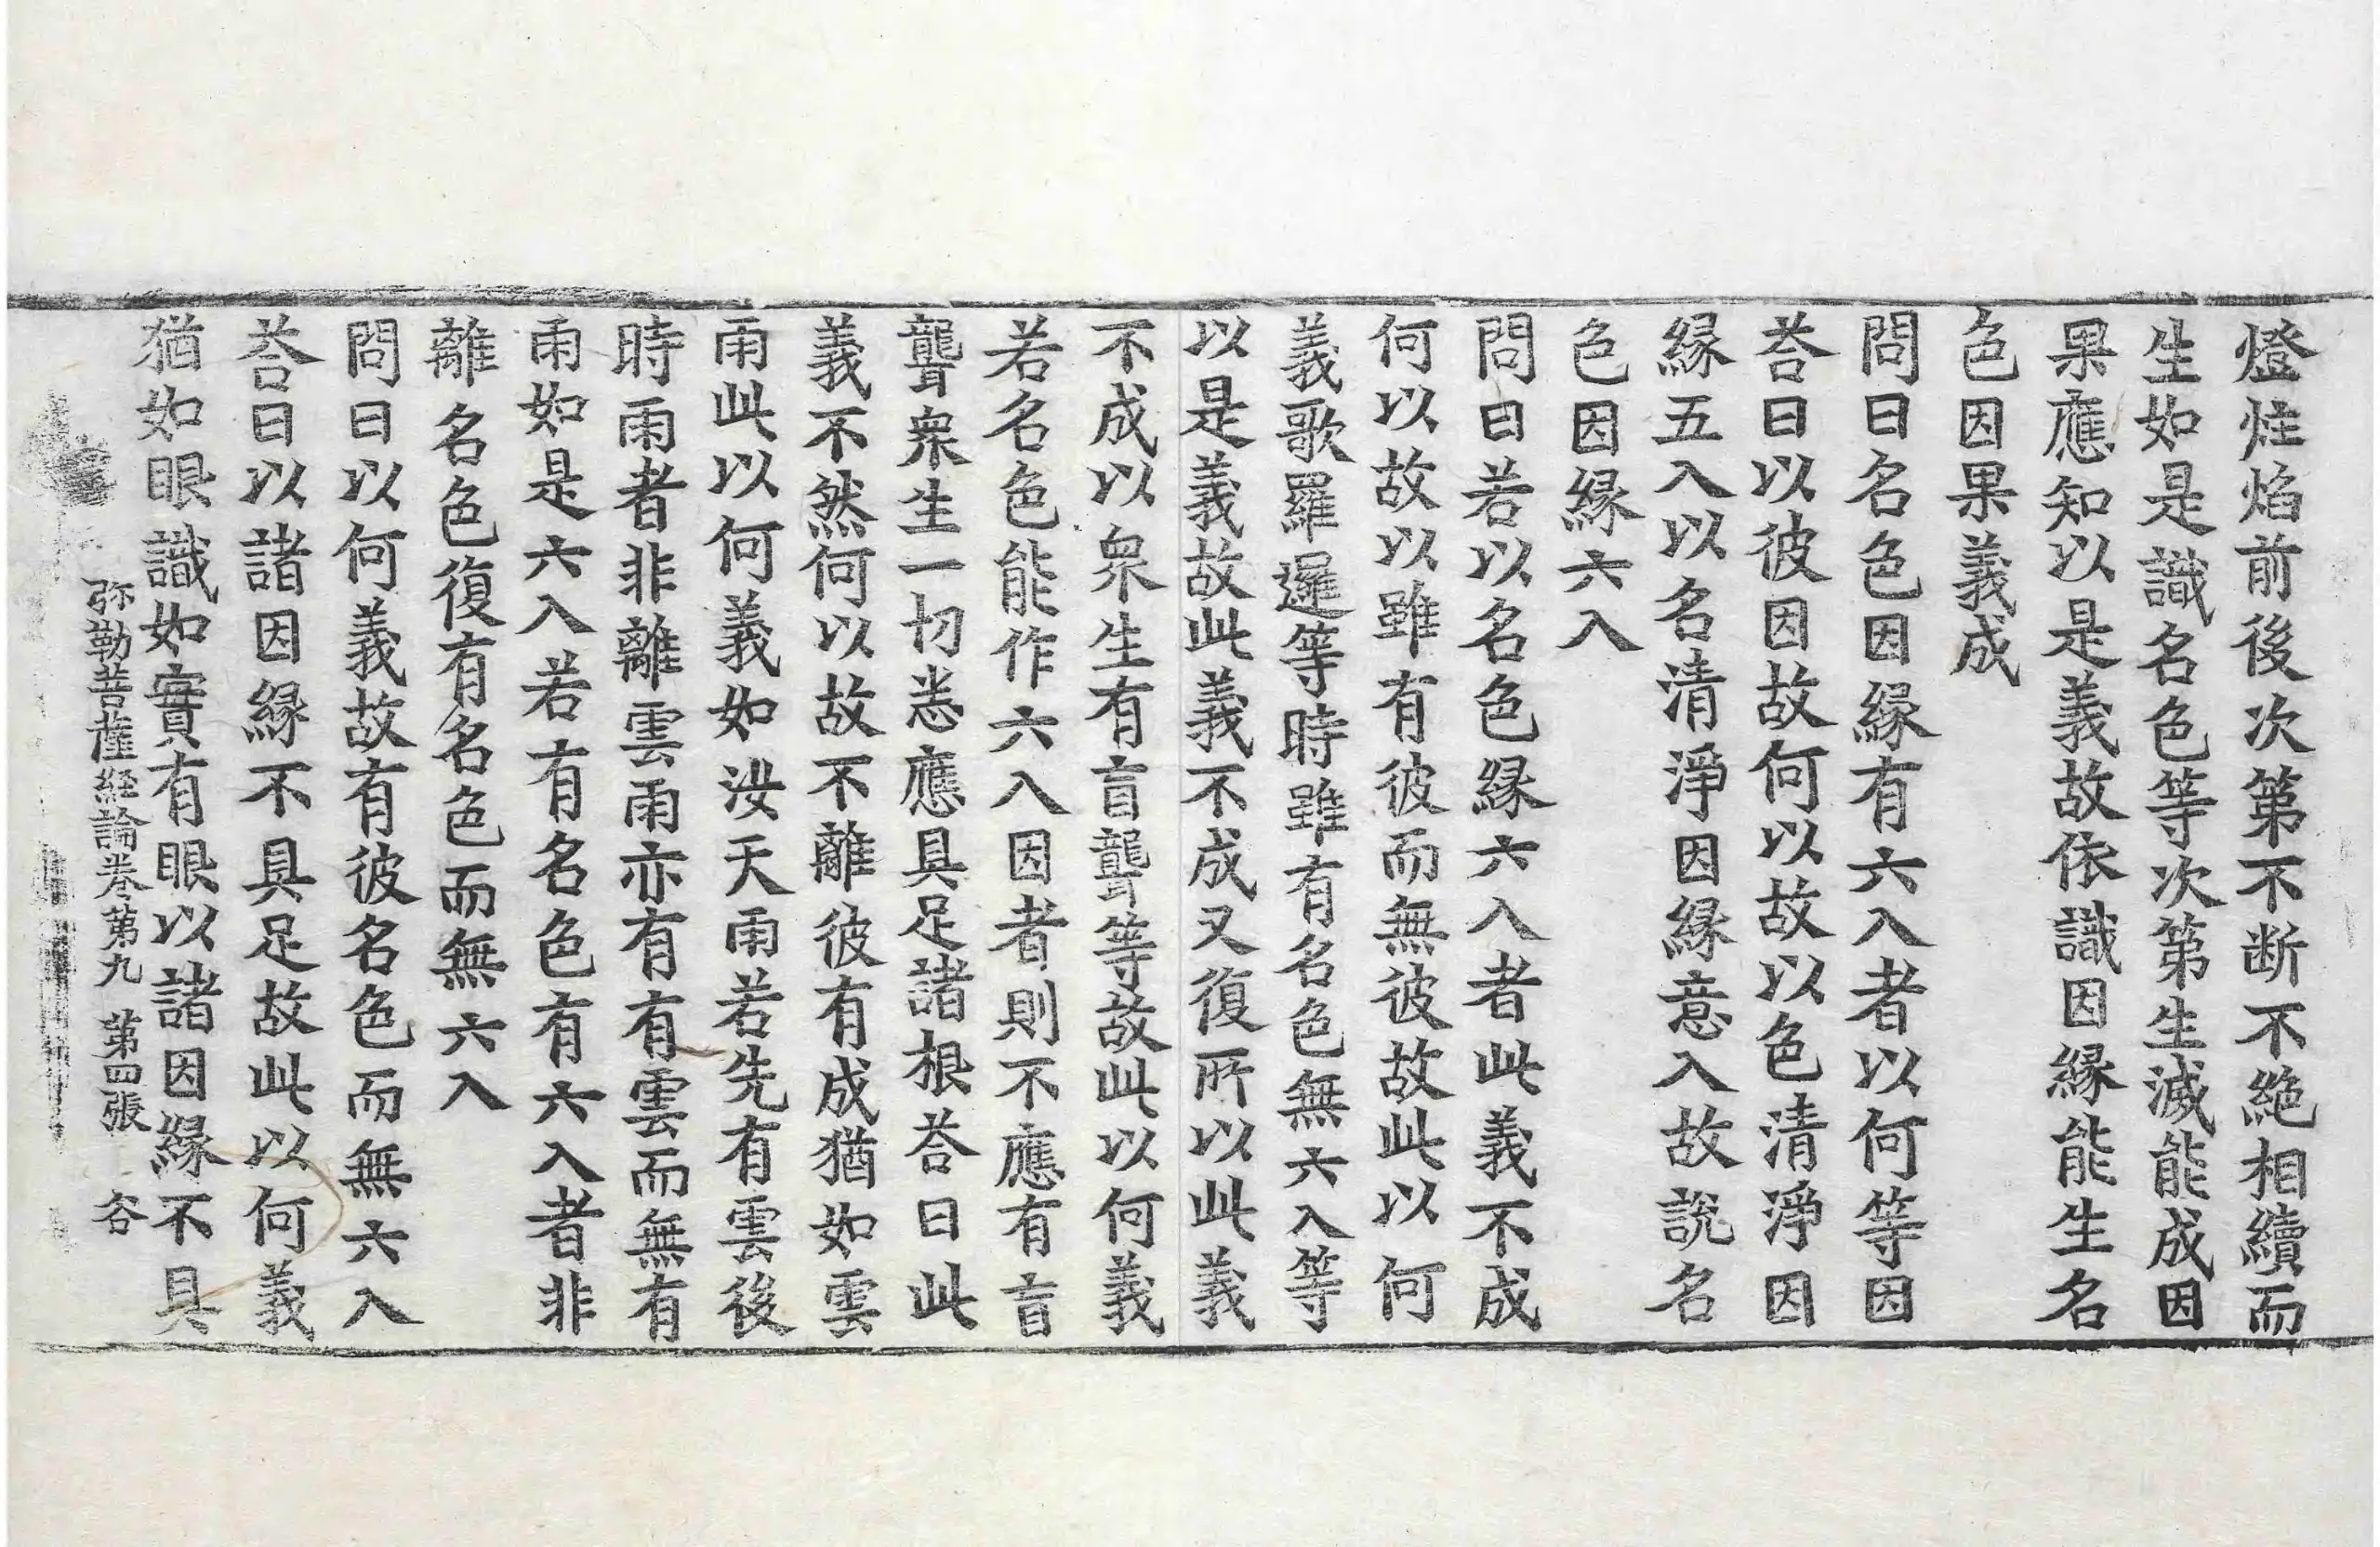 燈炷焰前後次第不断不絶相續而
生如是識名色等次第生滅能成因
果應知以是義故依識因縁能生名
色因果義成
問曰名色因縁有六入者以何等因
荅曰以彼因故何以故以色清淨因
縁五入以名清淨因縁意入故說名
色因縁六入
問曰若以名色縁六入者此義不成
何以故以雖有彼而無彼故此以何
義歌羅邏等時雖有名色無六入等
以是義故此義不成又復所以此義
不成以衆生有盲聾等故此以何義
若名色能作六入因者則不應有盲
聾衆生一切恙應具足諸根荅曰此
義不然何以故不離彼有成猶如雲
雨此以何義如汝天雨若先有雲後
時雨者非離雲雨亦有有雲而無有
雨如是六入若有名色有六入者非
離名色復有名色而無六入
問曰以何義故有彼名色而無六入
荅曰以諸因縁不具足故此以何義
猶如眼識如實有眼以諸因縁不具
弥勒菩薩経論卷第九 第四張 谷